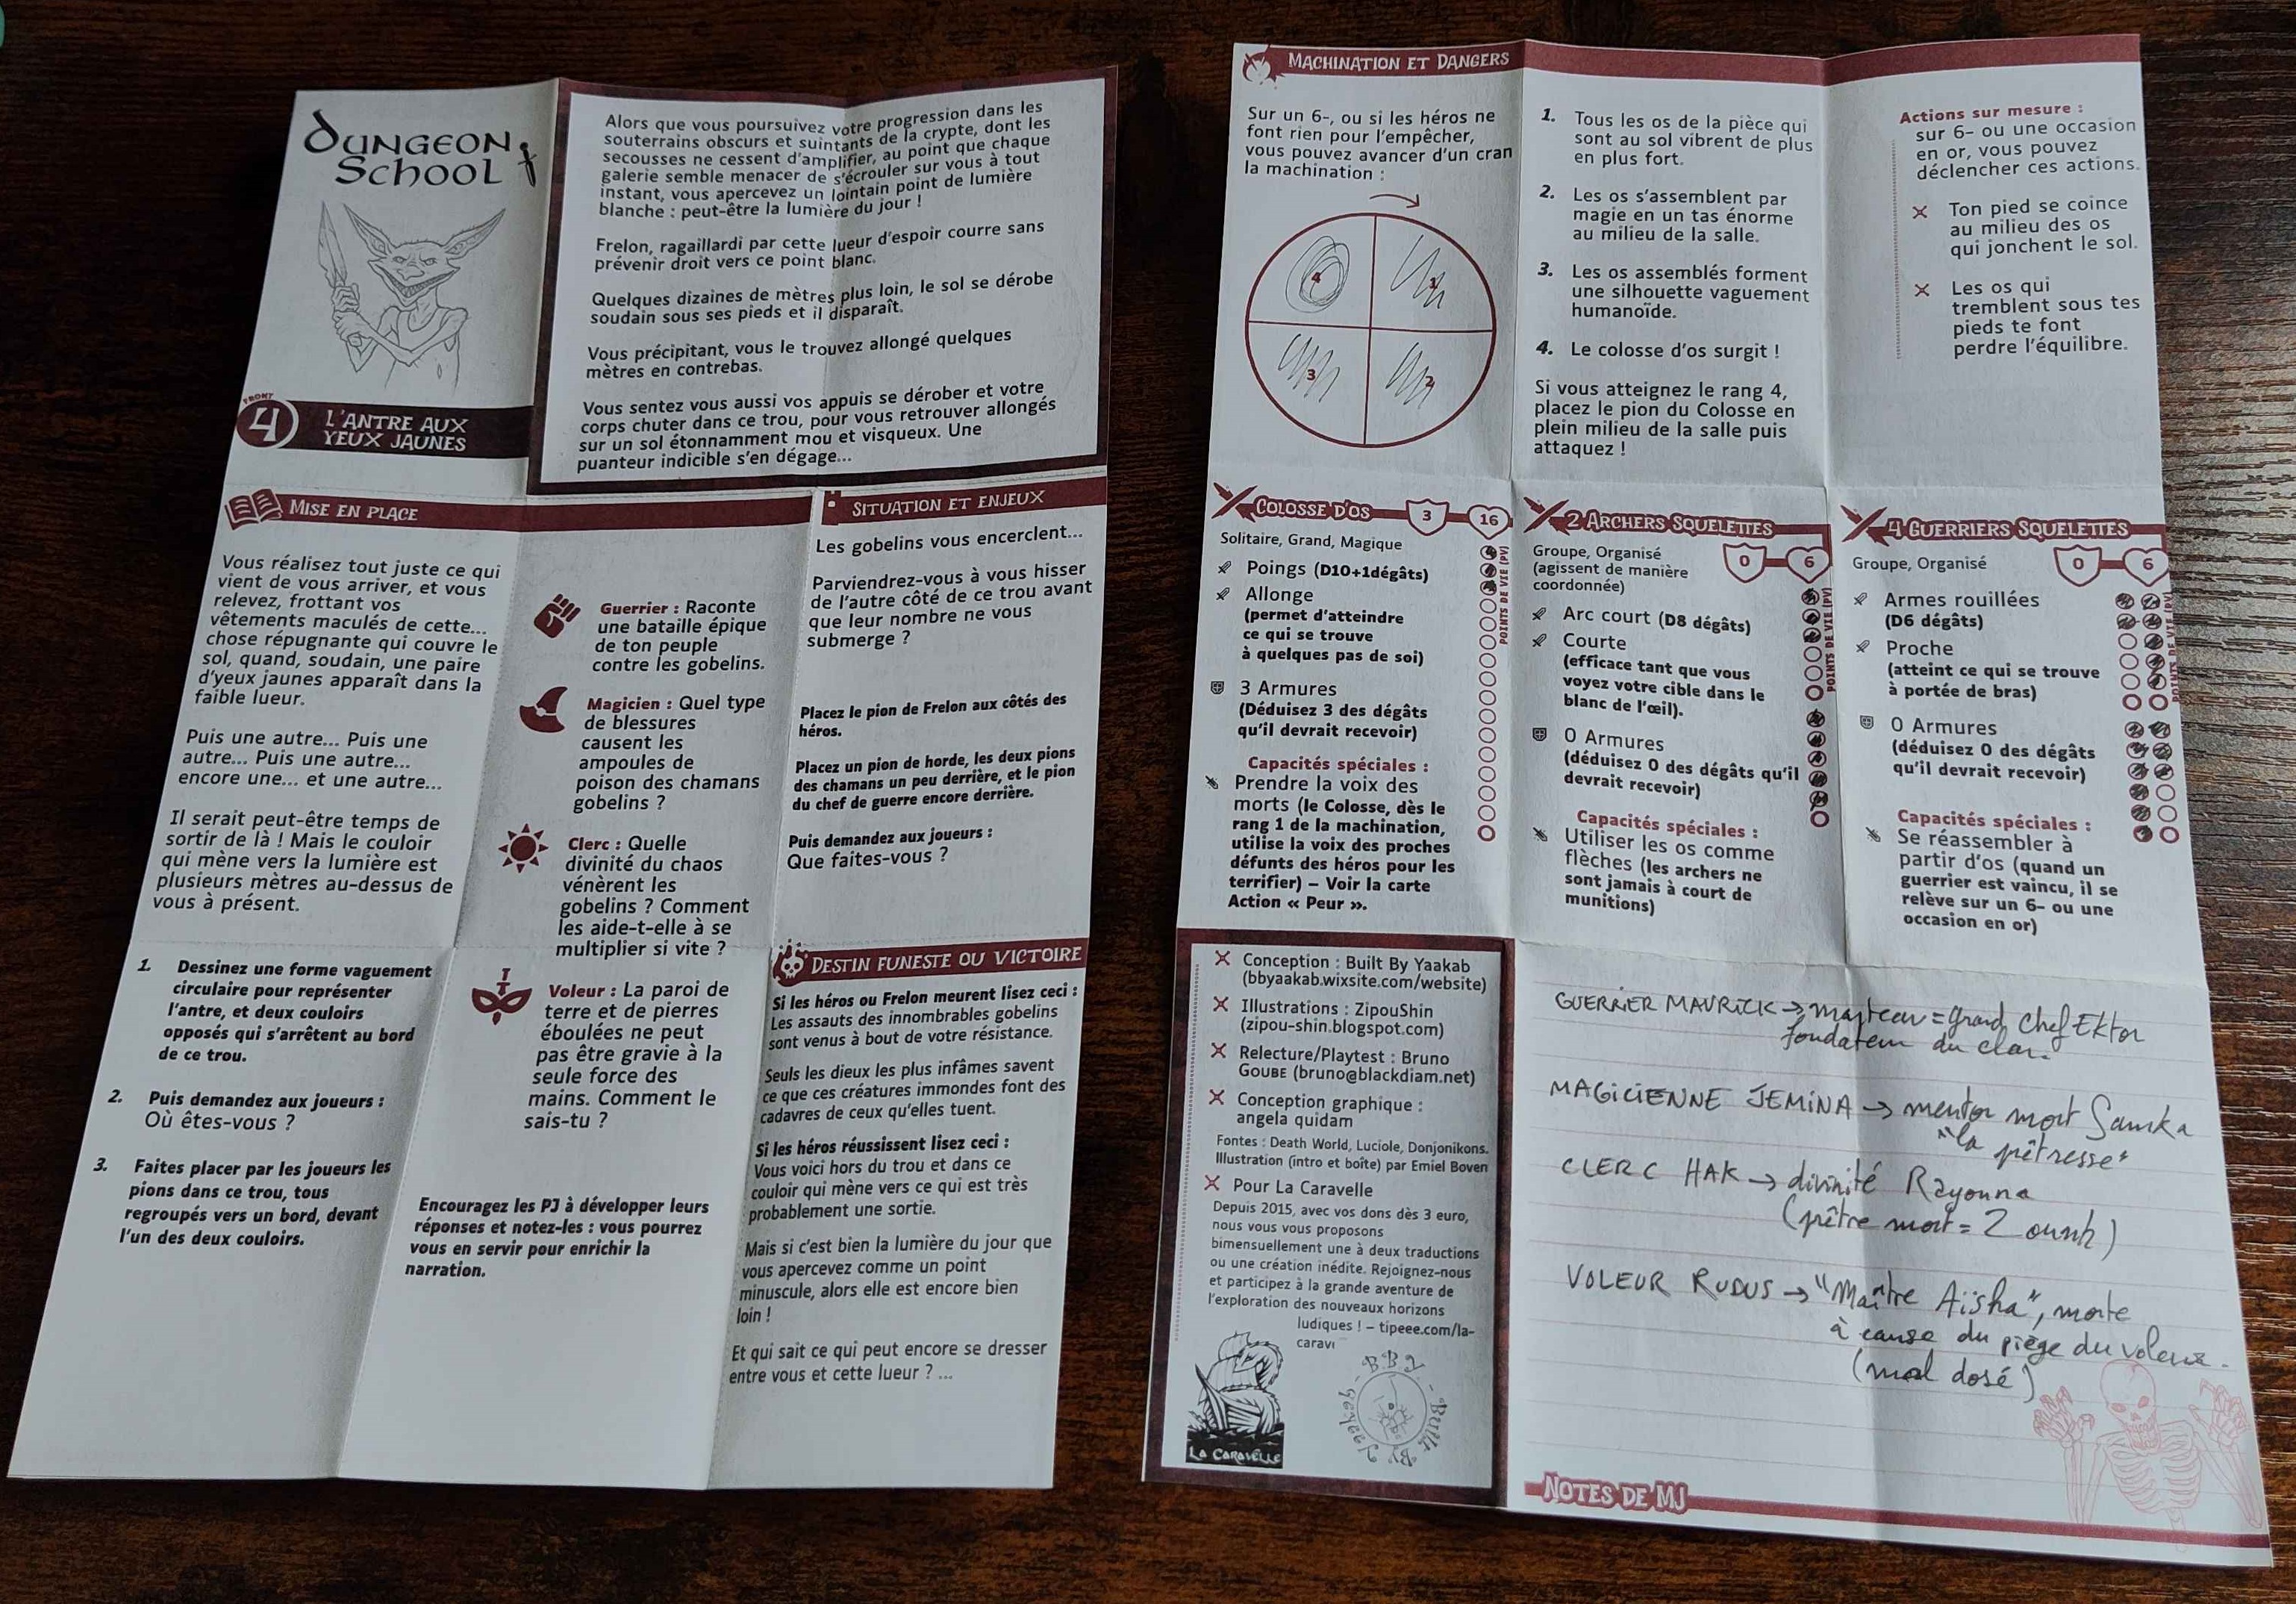 DUNGEON
SCHOOL
FRONT
4
L'ANTRE AUX
YEUX JAUNES
Alors que vous poursuivez votre progression dans les
souterrains obscurs et suintants de la crypte, dont les
secousses ne cessent d'amplifier, au point que chaque
galerie semble menacer de s'écrouler sur vous à tout
instant, vous apercevez un lointain point de lumière
blanche : peut-être la lumière du jour !
Frelon, ragaillardi par cette lueur d'espoir courre sans
prévenir droit vers ce point blanc.
Quelques dizaines de mètres plus loin, le sol se dérobe
soudain sous ses pieds et il disparaît.
Vous précipitant, vous le trouvez allongé quelques
mètres en contrebas.
Vous sentez vous aussi vos appuis se dérober et votre
corps chuter dans ce trou, pour vous retrouver allongés
sur un sol étonnamment mou et visqueux. Une
puanteur indicible s'en dégage...
MISE EN PLACE
Vous réalisez tout juste ce qui
vient de vous arriver, et vous
relevez, frottant vos
vêtements maculés de cette...
chose répugnante qui couvre le
sol, quand, soudain, une paire
d'yeux jaunes apparaît dans la
faible lueur.
Puis une autre... Puis une
autre... Puis une autre...
encore une... et une autre...
Il serait peut-être temps de
sortir de là ! Mais le couloir
qui mène vers la lumière est
plusieurs mètres au-dessus de
vous à présent.
1. Dessinez une forme vaguement
circulaire pour représenter
l'antre, et deux couloirs
opposés qui s'arrêtent au bord
de ce trou.
2. Puis demandez aux joueurs :
Où êtes-vous ?
3. Faites placer par les joueurs les
pions dans ce trou, tous
regroupés vers un bord, devant
l'un des deux couloirs.
Guerrier : Raconte
une bataille épique
de ton peuple
contre les gobelins.
Magicien : Quel type
de blessures
causent les
ampoules de
poison des chamans
gobelins ?
Clerc : Quelle
divinité du chaos
vénèrent les
gobelins ? Comment
les aide-t-elle à se
multiplier si vite ?
Voleur : La paroi de
terre et de pierres
éboulées ne peut
pas être gravie à la
seule force des
mains. Comment le
sais-tu ?
Encouragez les PJ à développer leurs
réponses et notez-les : vous pourrez
vous en servir pour enrichir la
narration.
SITUATION ET ENJEUX
Les gobelins vous encerclent...
Parviendrez-vous à vous hisser
de l'autre côté de ce trou avant
que leur nombre ne vous
submerge ?
Placez le pion de Frelon aux côtés des
héros.
Placez un pion de horde, les deux pions
des chamans un peu derrière, et le pion
du chef de guerre encore derrière.
Puis demandez aux joueurs :
Que faites-vous ?
DESTIN FUNESTE OU VICTOIRE
Si les héros ou Frelon meurent lisez ceci :
Les assauts des innombrables gobelins
sont venus à bout de votre résistance.
Seuls les dieux les plus infâmes savent
ce que ces créatures immondes font des
cadavres de ceux qu'elles tuent.
Si les héros réussissent lisez ceci :
Vous voici hors du trou et dans ce
couloir qui mène vers ce qui est très
probablement une sortie.
Mais si c'est bien la lumière du jour que
vous apercevez comme un point
minuscule, alors elle est encore bien
loin !
Et qui sait ce qui peut encore se dresser
entre vous et cette lueur ? ...
MACHINATION ET DANGERS
Sur un 6-, ou si les héros ne
font rien pour l'empêcher,
vous pouvez avancer d'un cran
la machination :
4
1
3
2
1. Tous les os de la pièce qui
sont au sol vibrent de plus
en plus fort.
2. Les os s'assemblent par
magie en un tas énorme
au milieu de la salle.
3. Les os assemblés forment
une silhouette vaguement
humanoïde.
4. Le colosse d'os surgit !
Si vous atteignez le rang 4,
placez le pion du Colosse en
plein milieu de la salle puis
attaquez !
Actions sur mesure :
sur 6- ou une occasion
en or, vous pouvez
déclencher ces actions.
Ton pied se coince
au milieu des os
qui jonchent le sol.
Les os qui
tremblent sous tes
pieds te font
perdre l'équilibre.
COLOSSE D'OS 3 16
Solitaire, Grand, Magique
Poings (D10+1dégâts)
Allonge
(permet d'atteindre
ce qui se trouve
à quelques pas de soi)
3 Armures
(Déduisez 3 des dégâts
qu'il devrait recevoir)
Capacités spéciales :
Prendre la voix des
morts (le Colosse, dès le
rang 1 de la machination,
utilise la voix des proches
défunts des héros pour les
terrifier) – Voir la carte
Action « Peur ».
POINTS DE VIE (PV)
2 ARCHERS SQUELETTES
0 6
Groupe, Organisé
(agissent de manière
coordonnée)
Arc court (D8 dégâts)
Courte
(efficace tant que vous
voyez votre cible dans le
blanc de l'œil).
0 Armures
(déduisez 0 des dégâts qu'il
devrait recevoir)
Capacités spéciales :
Utiliser les os comme
flèches (les archers ne
sont jamais à court de
munitions)
POINTS DE VIE (PV)
4 GUERRIERS SQUELETTES
0 6
Groupe, Organisé
Armes rouillées
(D6 dégâts)
Proche
(atteint ce qui se trouve
à portée de bras)
0 Armures
(déduisez 0 des dégâts
qu'il devrait recevoir)
Capacités spéciales :
Se réassembler à
partir d'os (quand un
guerrier est vaincu, il se
relève sur un 6- ou une
occasion en or)
POINTS DE VIE (PV)
Conception : Built By Yaakab
(bbyaakab.wixsite.com/website)
Illustrations : ZipouShin
(zipou-shin.blogspot.com)
Relecture/Playtest : Bruno
GOUBE (bruno@blackdiam.net)
Conception graphique :
angela quidam
Fontes : Death World, Luciole, Donjonikons.
Illustration (intro et boîte) par Emiel Boven
Pour La Caravelle
Depuis 2015, avec vos dons dès 3 euro,
nous vous vous proposons
bimensuellement une à deux traductions
ou une création inédite. Rejoignez-nous
et participez à la grande aventure de
l'exploration des nouveaux horizons
ludiques ! – tipeee.com/la-
caravi
LA CARAVELLE
BBY - Built By Yaakab
GUERRIER MAVRICK → marteau = grand chef Ektor
fondateur du clan.
MAGICIENNE JEMINA → mentor mort Samka
"la prêtresse"
CLERC HAK → divinité Rayonna
(prêtre mort = Zounk)
VOLEUR RUDUS → "Maître Aïsha", morte
à cause du piège du voleur.
(mal dosé)
NOTES DE MJ